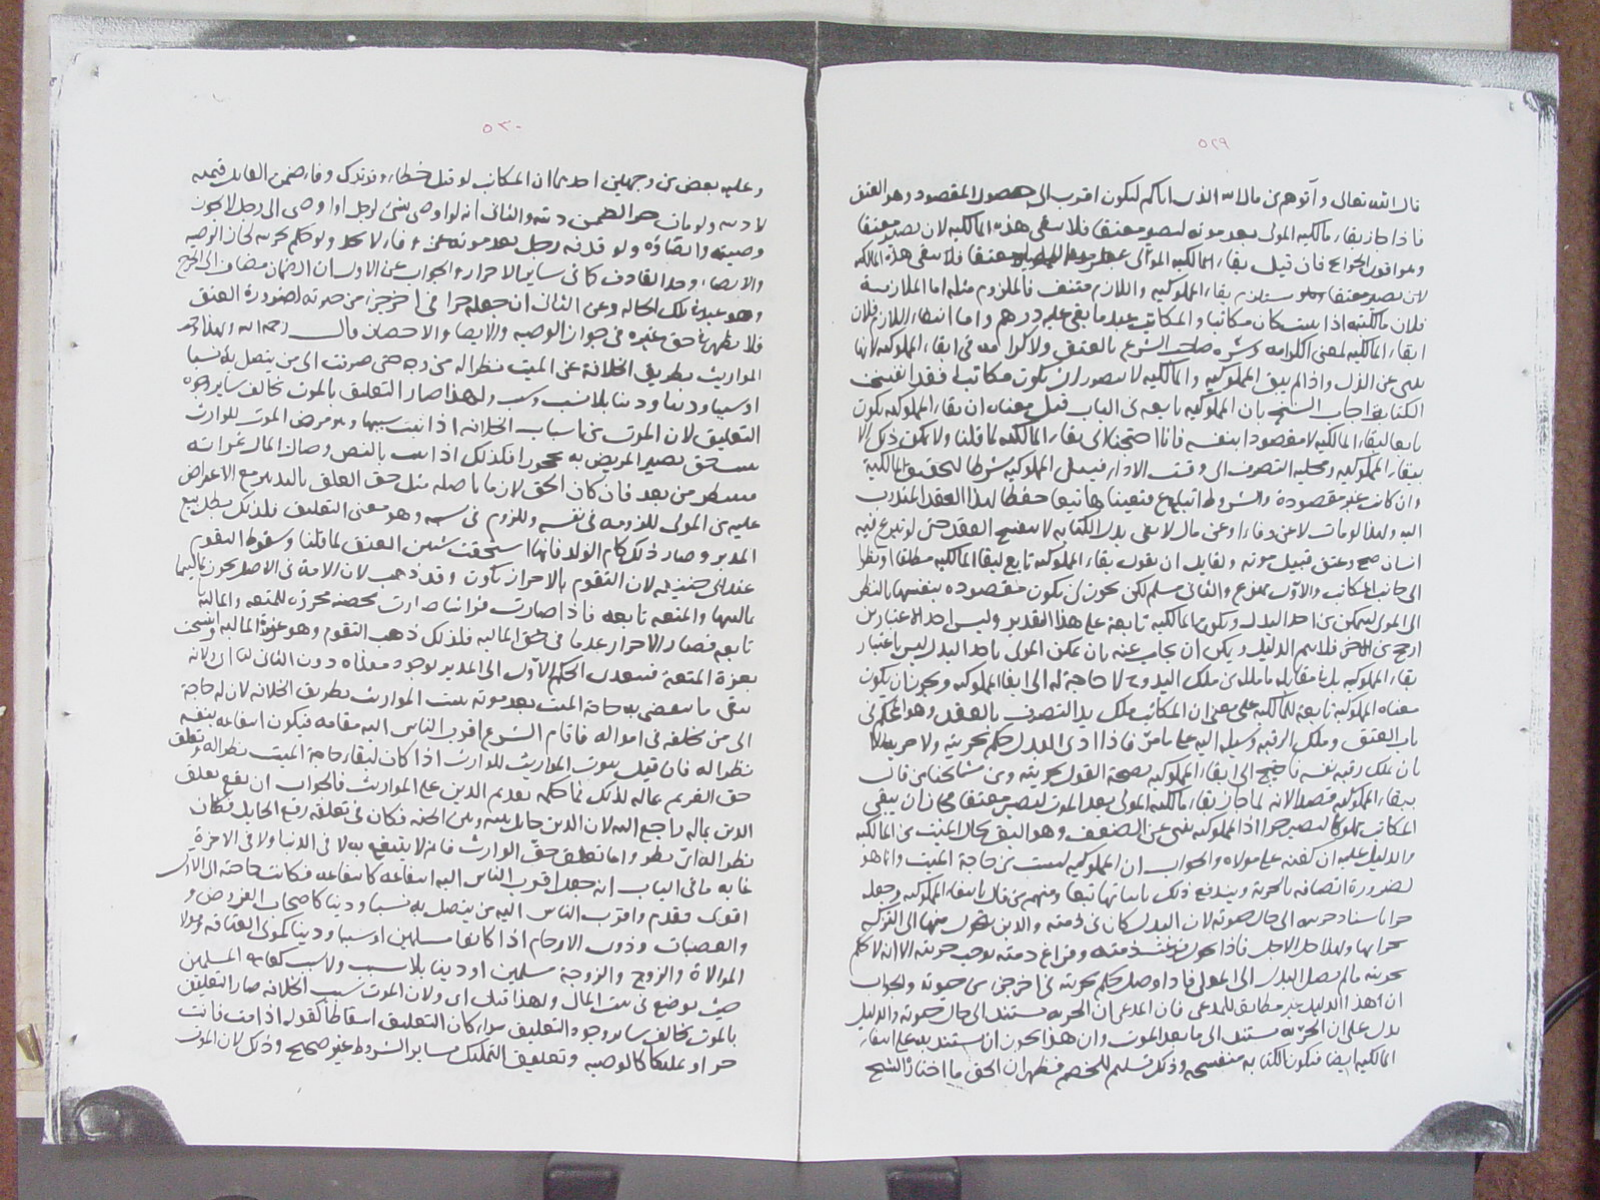 ٥٢٩
قال الله تعالى وآتوهم من مال الله الذي آتاكم ليكون اقرب الى حصول المقصود وهو العتق
فاذا جاز بقاء مالكية المولى بعد موته ليصير معتقا فلان تبقى هذه المالكية لان يصير معتقا
وهو افوى الحوائج فان قيل بقاء المالكية المولى معتقا فلا تبقى هذه المالكية
لان يصير معتقا يستلزم بقاء المملوكية واللازم منتف فالملزوم مثله اما الملازمة
فلان مالكيته اذا ثبتت كان مكاتبا والمكاتب عبد ما بقي عليه درهم واما انتفاء اللازم فلان
ابقاء المالكية لمعنى الكرامة صاحب الشرع بالعتق ولا كرامة في ابقاء المملوكية لانها
تنبئ عن الذل واذا لم يبق المملوكية والمالكية لا يتصور ان يكون مكاتبا فقد انفسخت
الكتابة اجاب الشيخ بان المملوكية تابعة في الباب قيل معناه ان بقاء المملوكية يكون
تابعا لبقاء المالكية لا مقصودا بنفسه فانا احتجنا الى بقاء المالكية لما قلنا ولا يمكن ذلك الا
ببقاء المملوكية ومحلية التصرف الى وقت الاداء فيبقى المملوكية شرطا لتحقيق المالكية
وان كانت غير مقصودة والشروط اتباع فبقيناها تبعا حفظا لهذا العقد المندوب
اليه ولهذا لو مات لا عن وفاء او عن مال لا يفي بدل الكتابة لا ينفسخ العقد حتى لو تبرع فيه
انسان صح وعتق قبيل موته ولقايل ان يقول بقاء المملوكية تابع لبقاء المالكية مطلقا او نظرا
الى جانب المكاتب والاول ممنوع والثاني مسلم لكن يجوز ان يكون مقصوده بنفسها بالنظر
الى المولى ليتمكن من اخذ البدل ويكون المالكية تابعة على هذا التقدير وليس احد الاعتبارين
ارجح من الاخر فلا يتم الدليل ويمكن ان يجاب عنه بان تمكن المولى باخذ البدل ليس باعتبار
بقاء المملوكية بل بمقابلة ما ملك من ملك اليد وح لا حاجة له الى ابقاء المملوكية ويجوز ان يكون
معناه المملوكية تابعة للمالكية على معنى ان المكاتب ملك يد التصرف بالعقد وهو المحكم في
باب العتق وملك الرقبة وسيلة اليه على ما مر فاذا ادى البدل حكم بحريته ولا حرية الا
بان ملك رقبة نفسه فاحتيج الى ابقاء المملوكية لصحة القول بحريته ومن مشايخنا من قال
ببقاء المملوكية قصدا لانه لما جاز بقاء مالكية المولى بعد الموت ليصير معتقا جاز ان يبقى
المكاتب مملوكا ليصير حرا اذ المملوكية تنبئ عن الضعف وهو اليق بحال الميت من المالكية
والدليل عليه ان كفنه على مولاه والجواب ان المملوكية ليست من حاجة الميت وانما هو
لضرورة اتصافه بالحرية ويندفع ذلك باثباتها تبعا ومنهم من قال بانتفاء المملوكية وجعله
حرا باسناد حريته الى حال حياته لان البدل كان في ذمته والدين يتحول منها الى التركة
وفراغ ذمته يوجب حريته الا انه لا يحكم
بحريته ما لم يصل البدل الى المولى فاذا وصل حكم بحريته في اخر جزء من حيوته والجواب
ان هذا الدليل غير مطابق للمدعى فان المدعى ان الحرية مستند الى حال حيوته والدليل
يدل على ان الحرية مستند الى ما بعد الموت وان هذا يجوز ان يستند به على ابقاء
المالكية ايضا فيكون الكتابة منفسخة وذلك تسليم للخصم فظهر ان الحق ما اختاره الشيخ
٥٣٠
وعليه بعض من وجهين احدهما ان المكاتب لو قتل خطاء وقد ترك وفاء ضمن القاتل قيمته
لا ديته ولو مات حرا لضمن ديته والثاني انه لو اوصى بشئ لرجل او اوصى الى رجل لا يجوز
وصيته وايصاؤه ولو قذفه رجل بعد موته عن وفاء لا يحد ولو حكم بحريته لجاز الوصية
والايصاء وحد القاذف كما في ساير الاحرار والجواب عن الاول ان الضمان مضاف الى الجرح
وهو عبد في تلك الحالة وعن الثاني ان جعله حرا في اخر جزء من حيوته لضرورة العتق
فلا يظهر في حق غيره في جواز الوصية والايصاء والاحصان قال رحمه الله ولهذا وجب
المواريث بطريق الخلافة عن الميت نظرا له من وجه حتى صرفت الى من يتصل به نسبا
او سببا ودينا او دينا بلا نسب وسبب ولهذا صار التعليق بالموت يخالف ساير وجوه
التعليق لان الموت من اسباب الخلافة اذا ثبت سببها وهو مرض الموت للوارث
حق يصير المريض به محجورا فكذلك اذا ثبت بالنص وصار المال غير انه
من بعد فان كان الحق لازما باصله مثل حق العتق بالتدبير مع الاعتراض
عليه من المولى للزومه في نفسه وللزوم في سببه وهو معنى التعليق فلذلك بطل بيع
المدبر وصار ذلك كام الولد فانها استحقت شيئين العتق لما قلنا وسقوط التقوم
عند ابي حنيفة لان التقوم بالاحراز يكون وقد ذهب لان الامة في الاصل يحرز ماليتها
والمتعة تابعة فاذا صارت فراشا صارت محصنة محرزة للمتعة والمالية
تابعة فصار الاحراز عدما في حق المالية فلذلك ذهب التقوم وهو عزة المالية
بعزة المتعة فتعدى الحكم الاول الى المدبر لوجود معناه دون الثاني لما
يبقى ما ينقضي به حاجة الميت بعد موته يثبت المواريث بطريق الخلافة لان له حاجة
الى من يخلفه في امواله فاقام الشرع اقرب الناس اليه مقامه فيكون انتفاعه بنفسه
نظرا له فان قيل ثبوت المواريث للوارث اذا كان لبقاء حاجة الميت نظرا له وتعلق
حق الغريم بماله لذلك فما حكمة تقديم الدين على المواريث فالجواب ان نفع تعلق
الدين بماله راجع اليه لان الدين حايل بينه وبين الجنة فكان في تعلقه رفع الحايل فكان
نظرا له اي نظر واما تعلق حق الوارث فانه لا ينتفع به لا في الدنيا ولا في الاخرة
غاية ما في الباب انه جعل اقرب الناس اليه انتفاعه كانتفاعه فكانت حاجته الى الاول
اقوى فقدم واقرب الناس اليه من يتصل به نسبا ودينا كاصحاب الفروض و
والعصبات وذوي الارحام اذا كانوا مسلمين او سببا ودينا كمولى العتاقة ومولى
الموالاة والزوج والزوجة مسلمين او دينا بلا نسب ولا سبب كعامة المسلمين
حيث يوضع في بيت المال ولهذا قيل اي ولان الموت سبب الخلافة صار التعليق
بالموت يخالف ساير وجوه التعليق سواء كان التعليق اسقاطا كقوله اذا مت فانت
حر او تمليكا كالوصية وتعليق التمليك بساير الشروط غير صحيح وذلك لان الموت